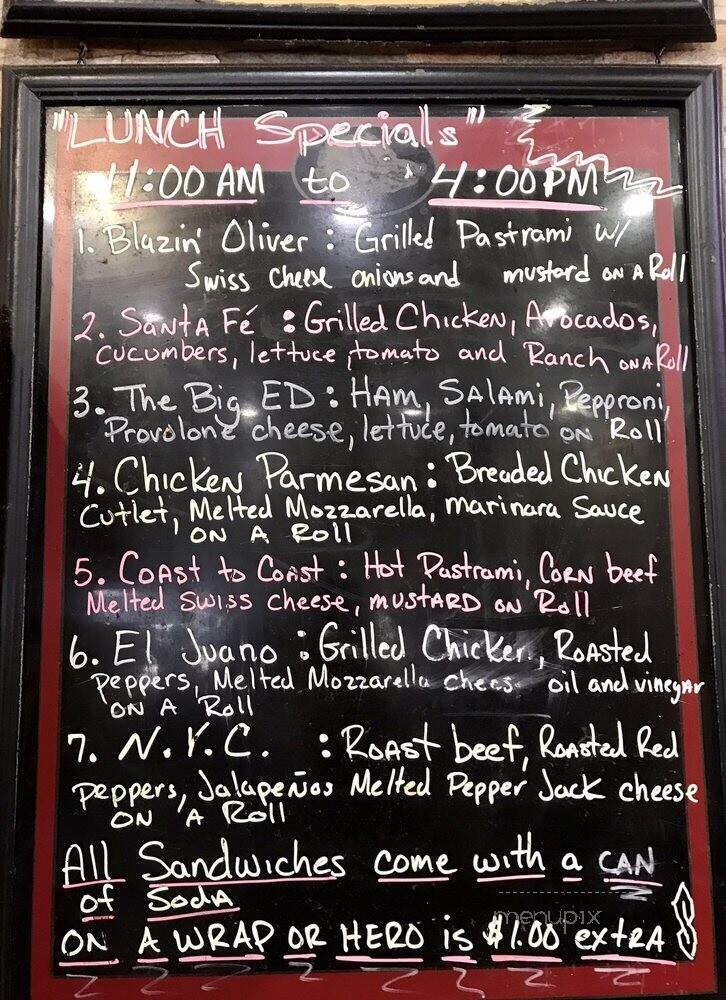 "LUNCH Specials"
11:00 AM to 4:00 PM
1. Blazin' Oliver : Grilled Pastrami w/
Swiss cheese onions and mustard ON A Roll
2. SANTA Fé : Grilled Chicken, Avocados,
cucumbers, lettuce, tomato and Ranch ON A Roll
3. The Big ED : HAM, SALAMi, Pepproni,
Provolone cheese, lettuce, tomato ON Roll
4. Chicken Parmesan : Breaded Chicken
Cutlet, Melted Mozzarella, marinara Sauce
ON A Roll
5. COAST to COAST : Hot Pastrami, CORN beef
Melted Swiss cheese, MUSTARD ON Roll
6. El Juano : Grilled Chicken, ROASTED
Peppers, Melted Mozzarella chees oil and vinegar
ON A Roll
7. N.Y.C. : ROAST beef, Roasted Red
peppers, Jalapeños Melted Pepper Jack cheese
ON A Roll
All Sandwiches come with a CAN
of SODA
ON A WRAP OR HERO is $1.00 extRA
menupix